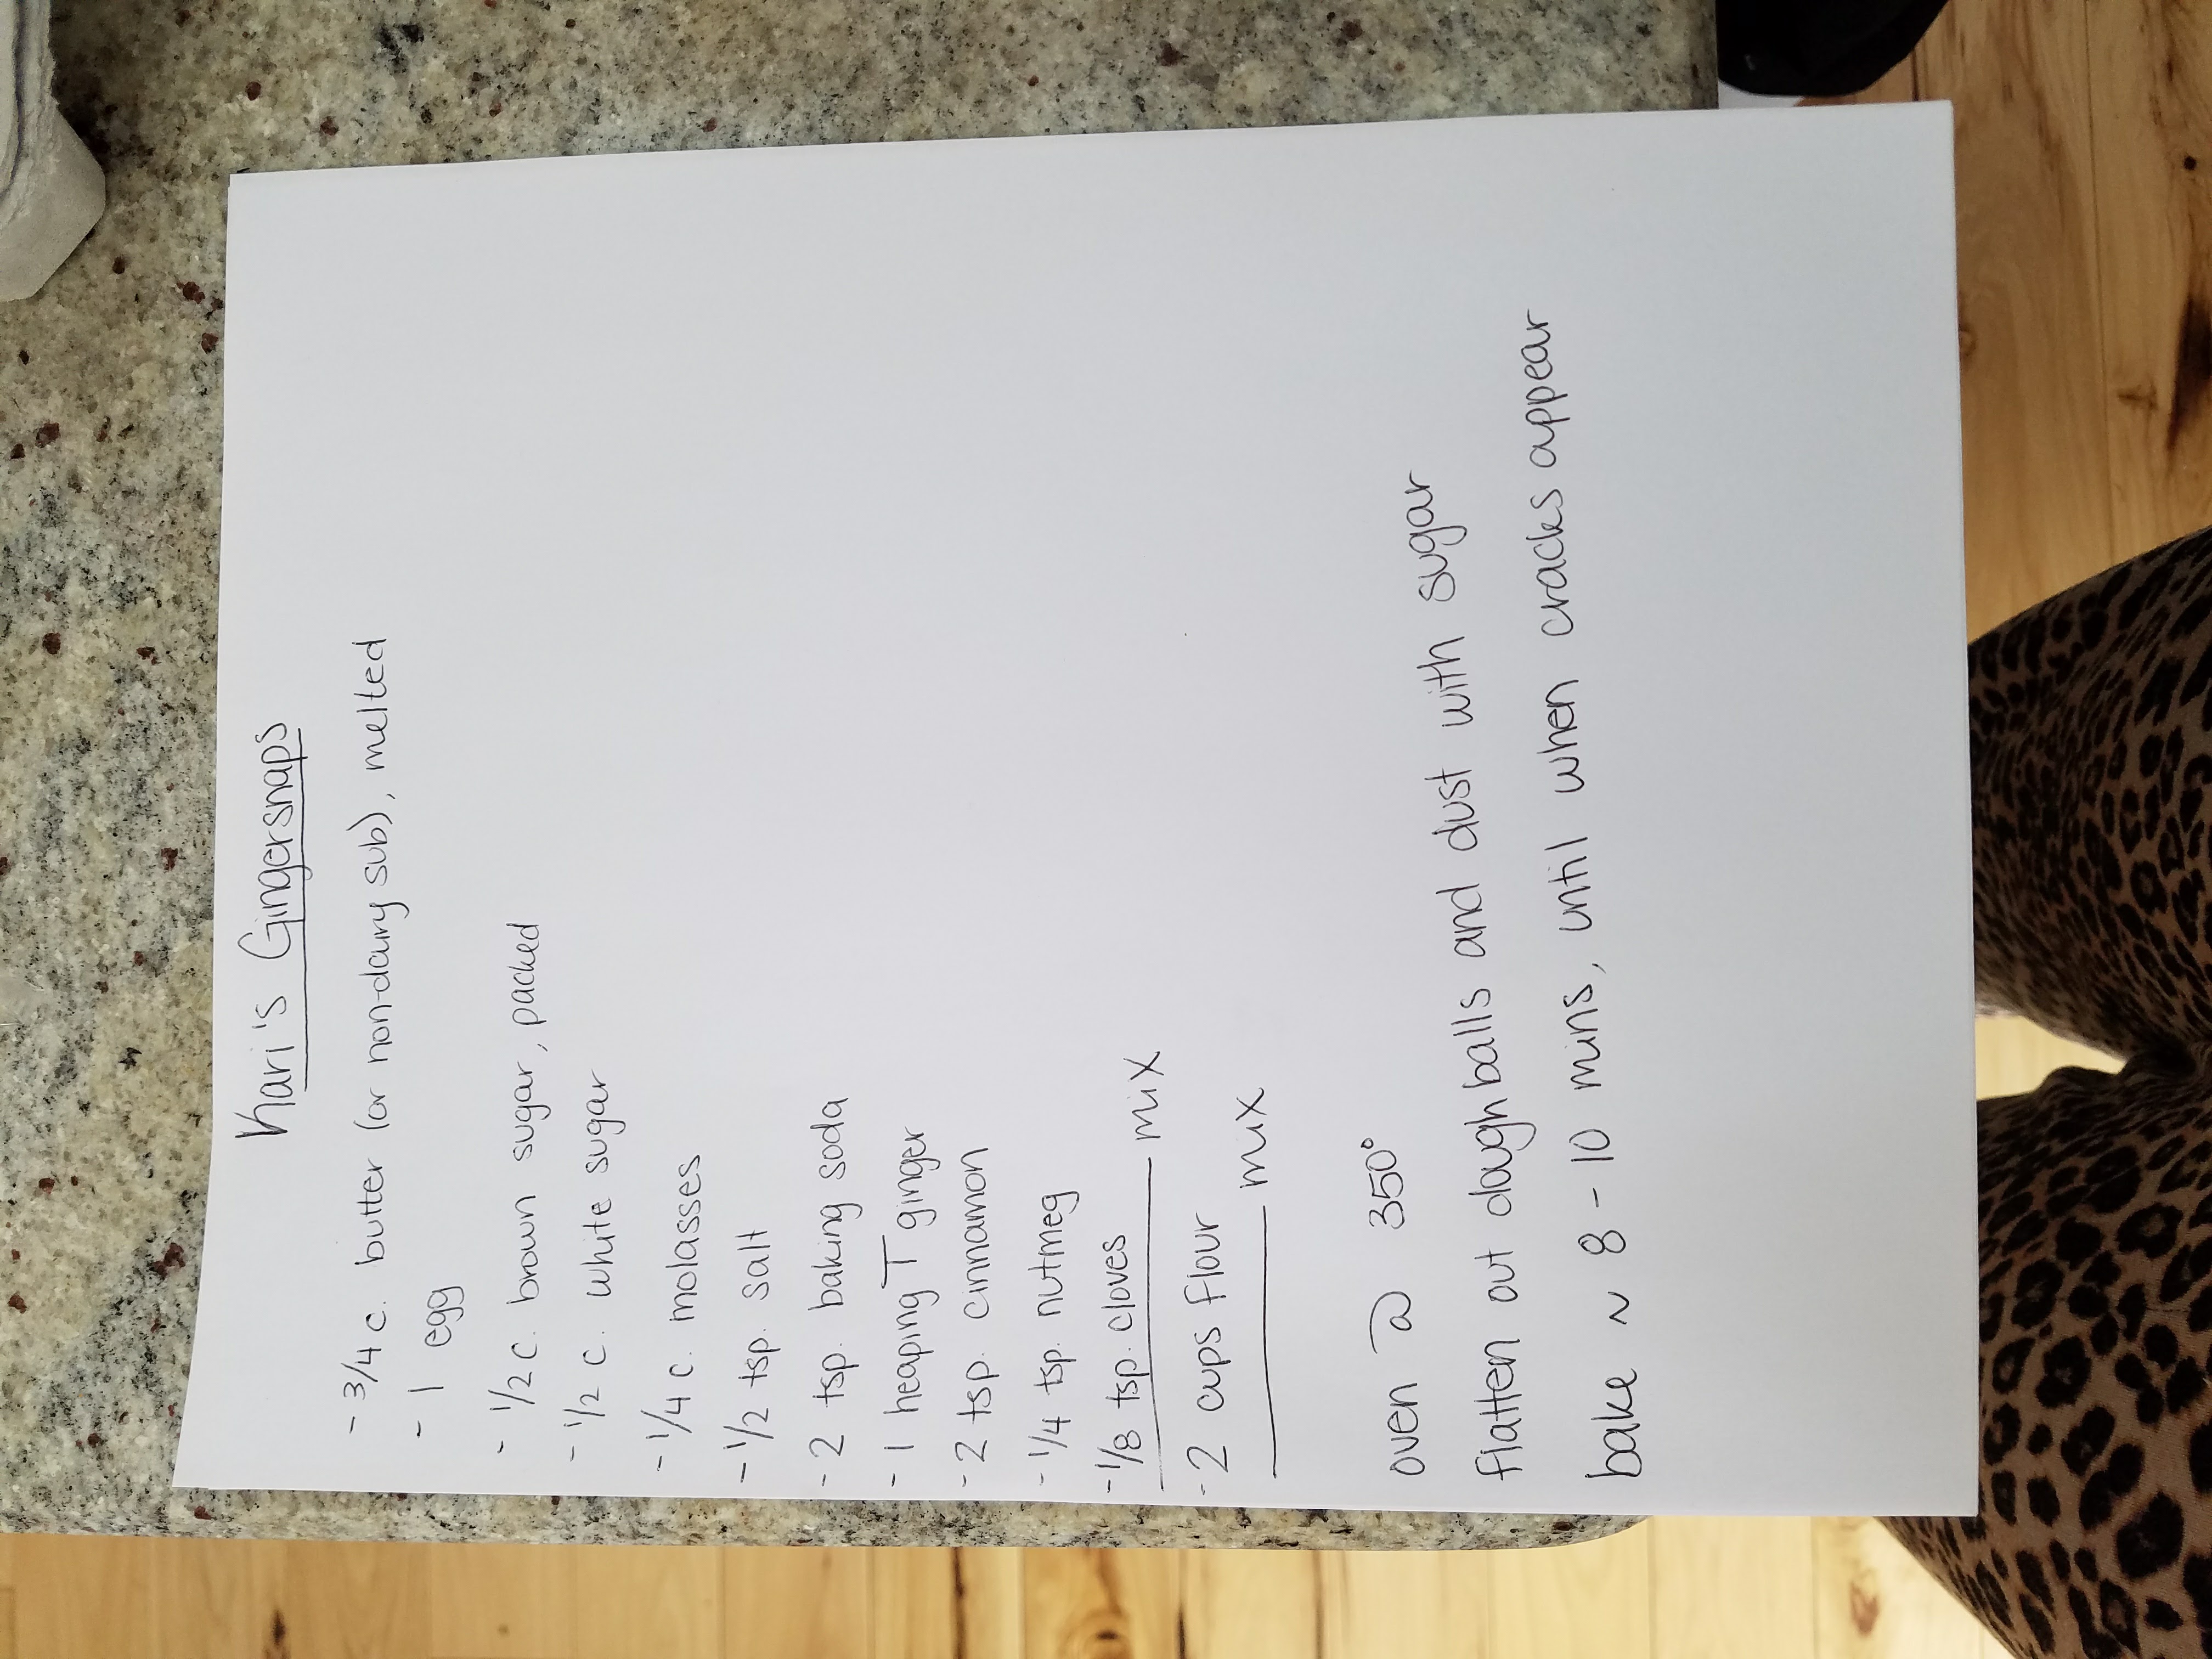 Kari's Gingersnaps
- 3/4 c. butter (or non-dairy sub), melted
- 1 egg
- 1/2 c. brown sugar, packed
- 1/2 c. white sugar
- 1/4 c. molasses
- 1/2 tsp. salt
- 2 tsp. baking soda
- 1 heaping T ginger
- 2 tsp. cinnamon
- 1/4 tsp. nutmeg
- 1/8 tsp. cloves
mix
- 2 cups flour
mix
oven @ 350°
flatten out dough balls and dust with sugar
bake ~ 8-10 mins, until when cracks appear